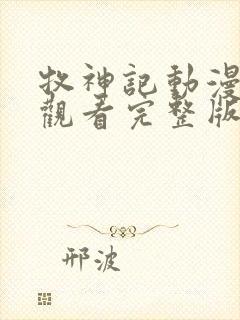 牧神記動漫
觀看完整版
邢波